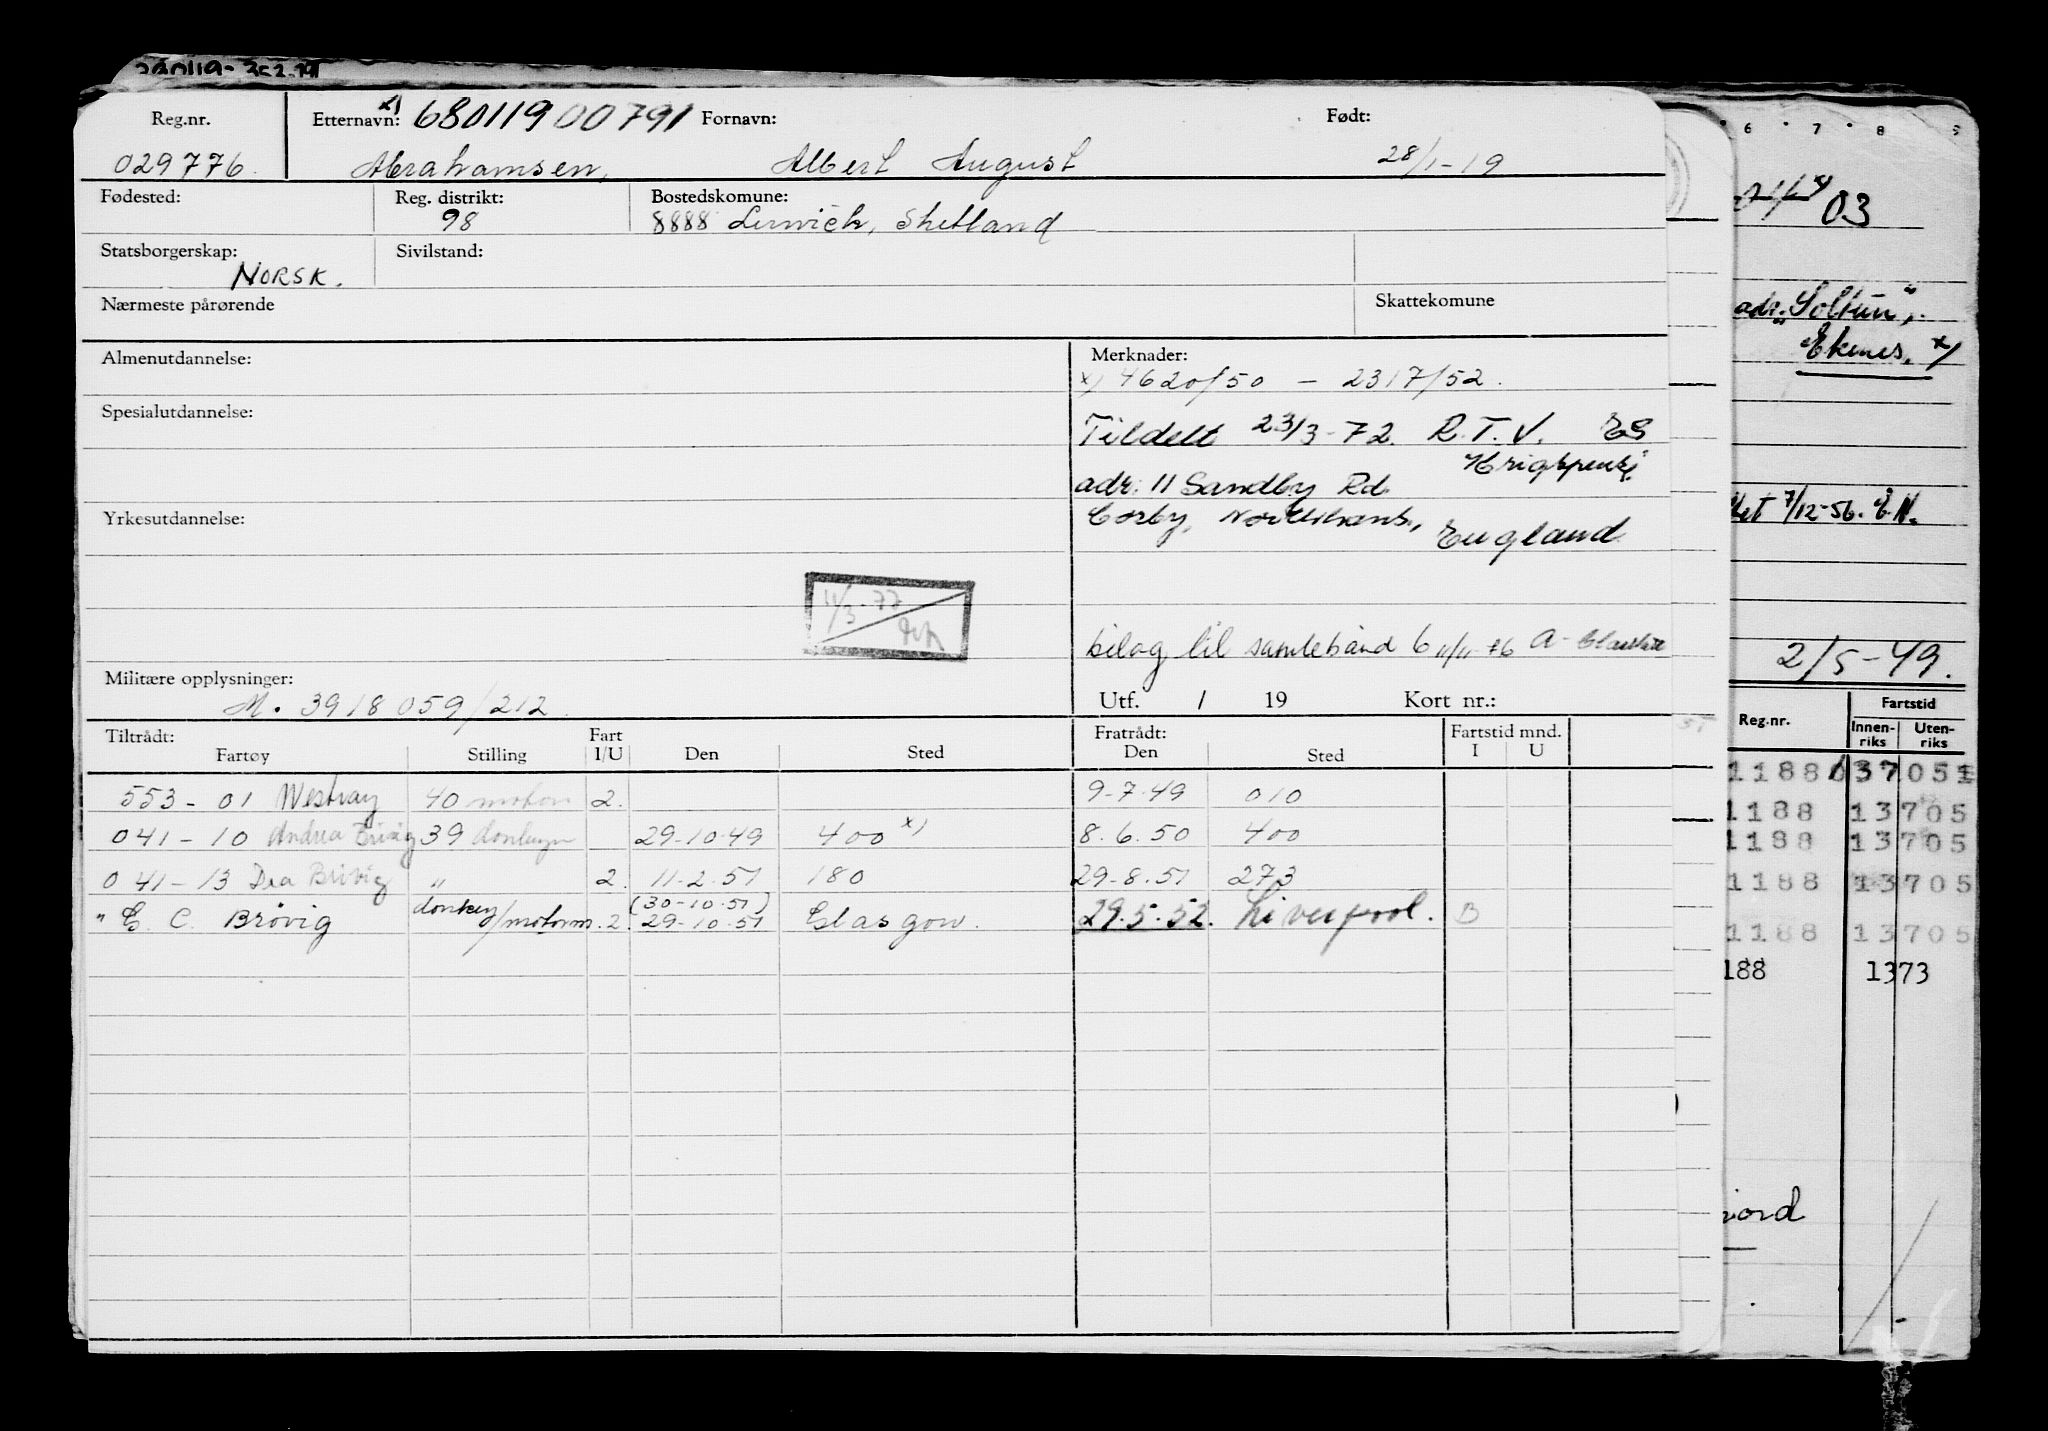 Reg.nr.
Etternavn: x) 68011900791 Fornavn:
Født:
029776.
Abrahamsen, Albert August
28/1-19
Fødested:
Reg. distrikt:
98
Bostedskomune:
8888 Lerwick, Shetland
Statsborgerskap:
NORSK.
Sivilstand:
Nærmeste pårørende
Skattekomune
Almenutdannelse:
Merknader:
x) 4620/50 - 2317/52.
Spesialutdannelse:
Tildelt 23/3-72. R.T.V.
adr: 11 Sandby Rd
Yrkesutdannelse:
Corby, England
11/3-77
bilag til samlebånd 6 11/11-76
Militære opplysninger:
M. 3918059/212
Utf. / 19 Kort nr.:
Tiltrådt:
Fartøy Stilling Fart I/U Den Sted
Fratrådt:
Den Sted
Fartstid mnd.
I U
553-01 Westray 40 motorm 2. 9-7-49 010
041-10 Andrea Brøvig 39 29-10-49 400 x) 8.6.50 400
041-13 Dea Brövig " 2. 11-2-51 180 29-8-51 273
" G. C. Brøvig donkey/motorm. 2. (30-10-51) 29-10-51 Glasgow. 29.5.52. Liverpool. B
03
adr. "Soltun",
Ekenes. x)
7/12-56.
2/5-49.
Reg.nr.
Fartstid
Innen-riks
Uten-riks
1188 13705
1188 13705
1188 13705
1188 13705
188 1373